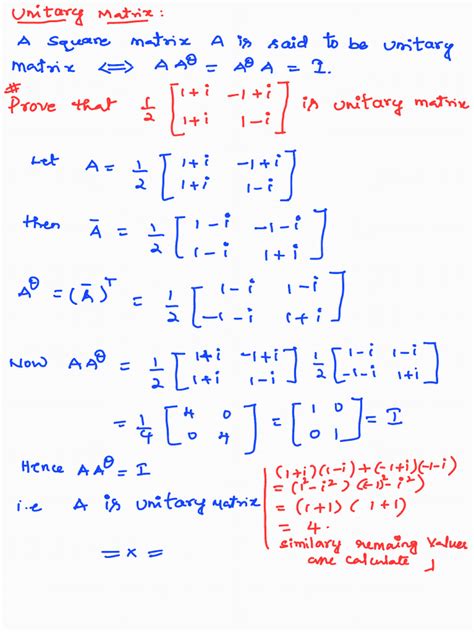 Unitary Matrix:
A square matrix A is said to be unitary
matrix ⇔ A A^θ = A^θ A = I.
# Prove that 1/2 [1+i  -1+i; 1+i  1-i] is unitary matrix
Let A = 1/2 [1+i  -1+i; 1+i  1-i]
then Ā = 1/2 [1-i  -1-i; 1-i  1+i]
A^θ = (Ā)^T = 1/2 [1-i  1-i; -1-i  1+i]
Now A A^θ = 1/2 [1+i  -1+i; 1+i  1-i] 1/2 [1-i  1-i; -1-i  1+i]
= 1/4 [4  0; 0  4] = [1  0; 0  1] = I
Hence A A^θ = I
i.e A is unitary matrix
= x =
(1+i)(1-i)+(-1+i)(-1-i)
= (1²-i²) (-1)²-i²)
= (1+1) (1+1)
= 4.
similary remaing values
are calculate